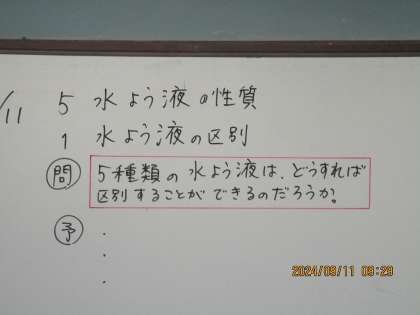 /11 5 水よう液の性質
1 水よう液の区別
問 5種類の水よう液は、どうすれば
区別することができるのだろうか。
予 ・
・
・
2024/09/11 09:29